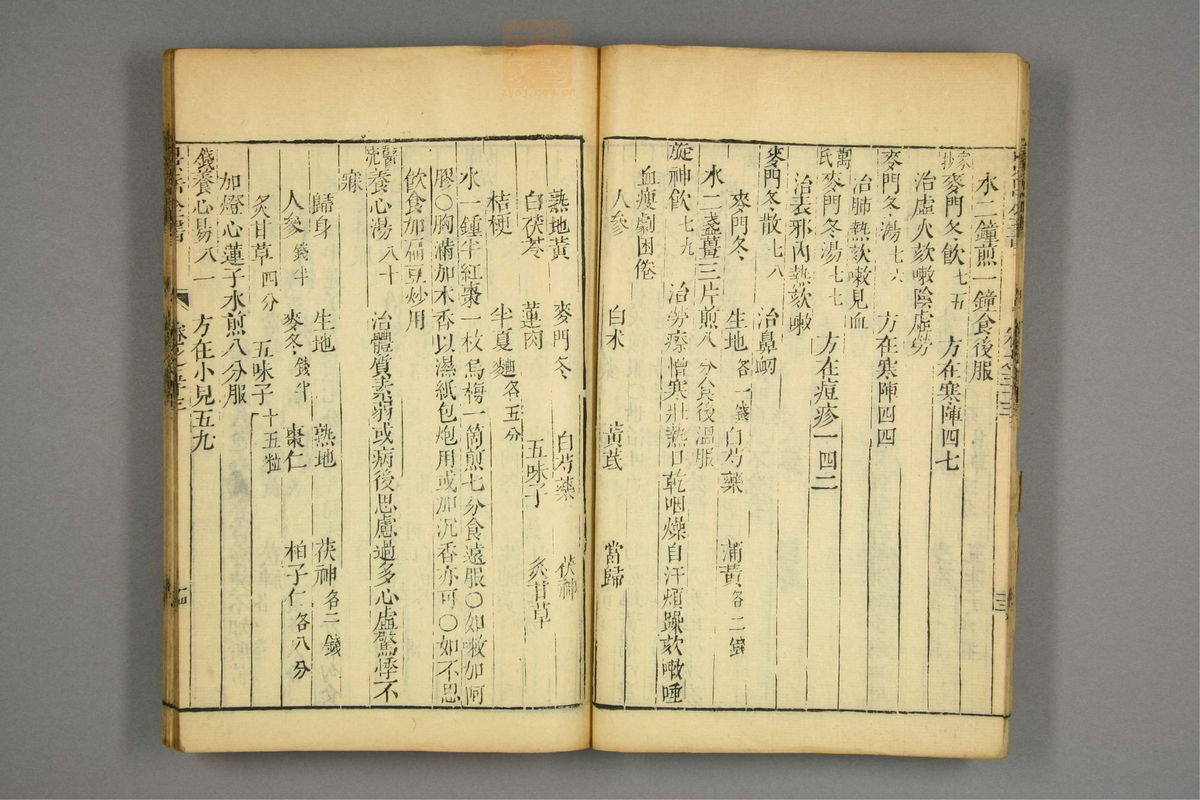 水二鐘煎一鐘食後服
家抄麥門冬飲七五　方在寒陣四七
治虛火欬嗽陰虛勞
麥門冬湯七六　方在寒陣四四
治肺熱欬嗽見血
萬氏麥門冬湯七七　方在痘疹一四二
治表邪內熱欬嗽
麥門冬散七八　治鼻衂
麥門冬　生地各一錢　白芍藥　蒲黃各二錢
水二盞薑三片煎八分食後溫服
旋神飲七九　治勞瘵憎寒壯熱口乾咽燥自汗煩躁欬嗽唾
血瘦劇困倦
人參　白朮　黃芪　當歸
熟地黃　麥門冬　白芍藥　茯神
白茯苓　蓮肉　五味子　炙甘草
桔梗　半夏麯各五分
水一鍾半紅棗一枚烏梅一箇煎七分食遠服○如嗽加阿
膠○胸滿加木香以濕紙包炮用或加沉香亦可○如不思
飲食加扁豆炒用
醫統養心湯八十　治體質素弱或病後思慮過多心虛驚悸不
寐
歸身　生地　熟地　茯神各二錢
人參錢半　麥冬錢半　棗仁　柏子仁各八分
炙甘草四分　五味子十五粒
加燈心蓮子水煎八分服
錢養心湯八一　方在小兒五九